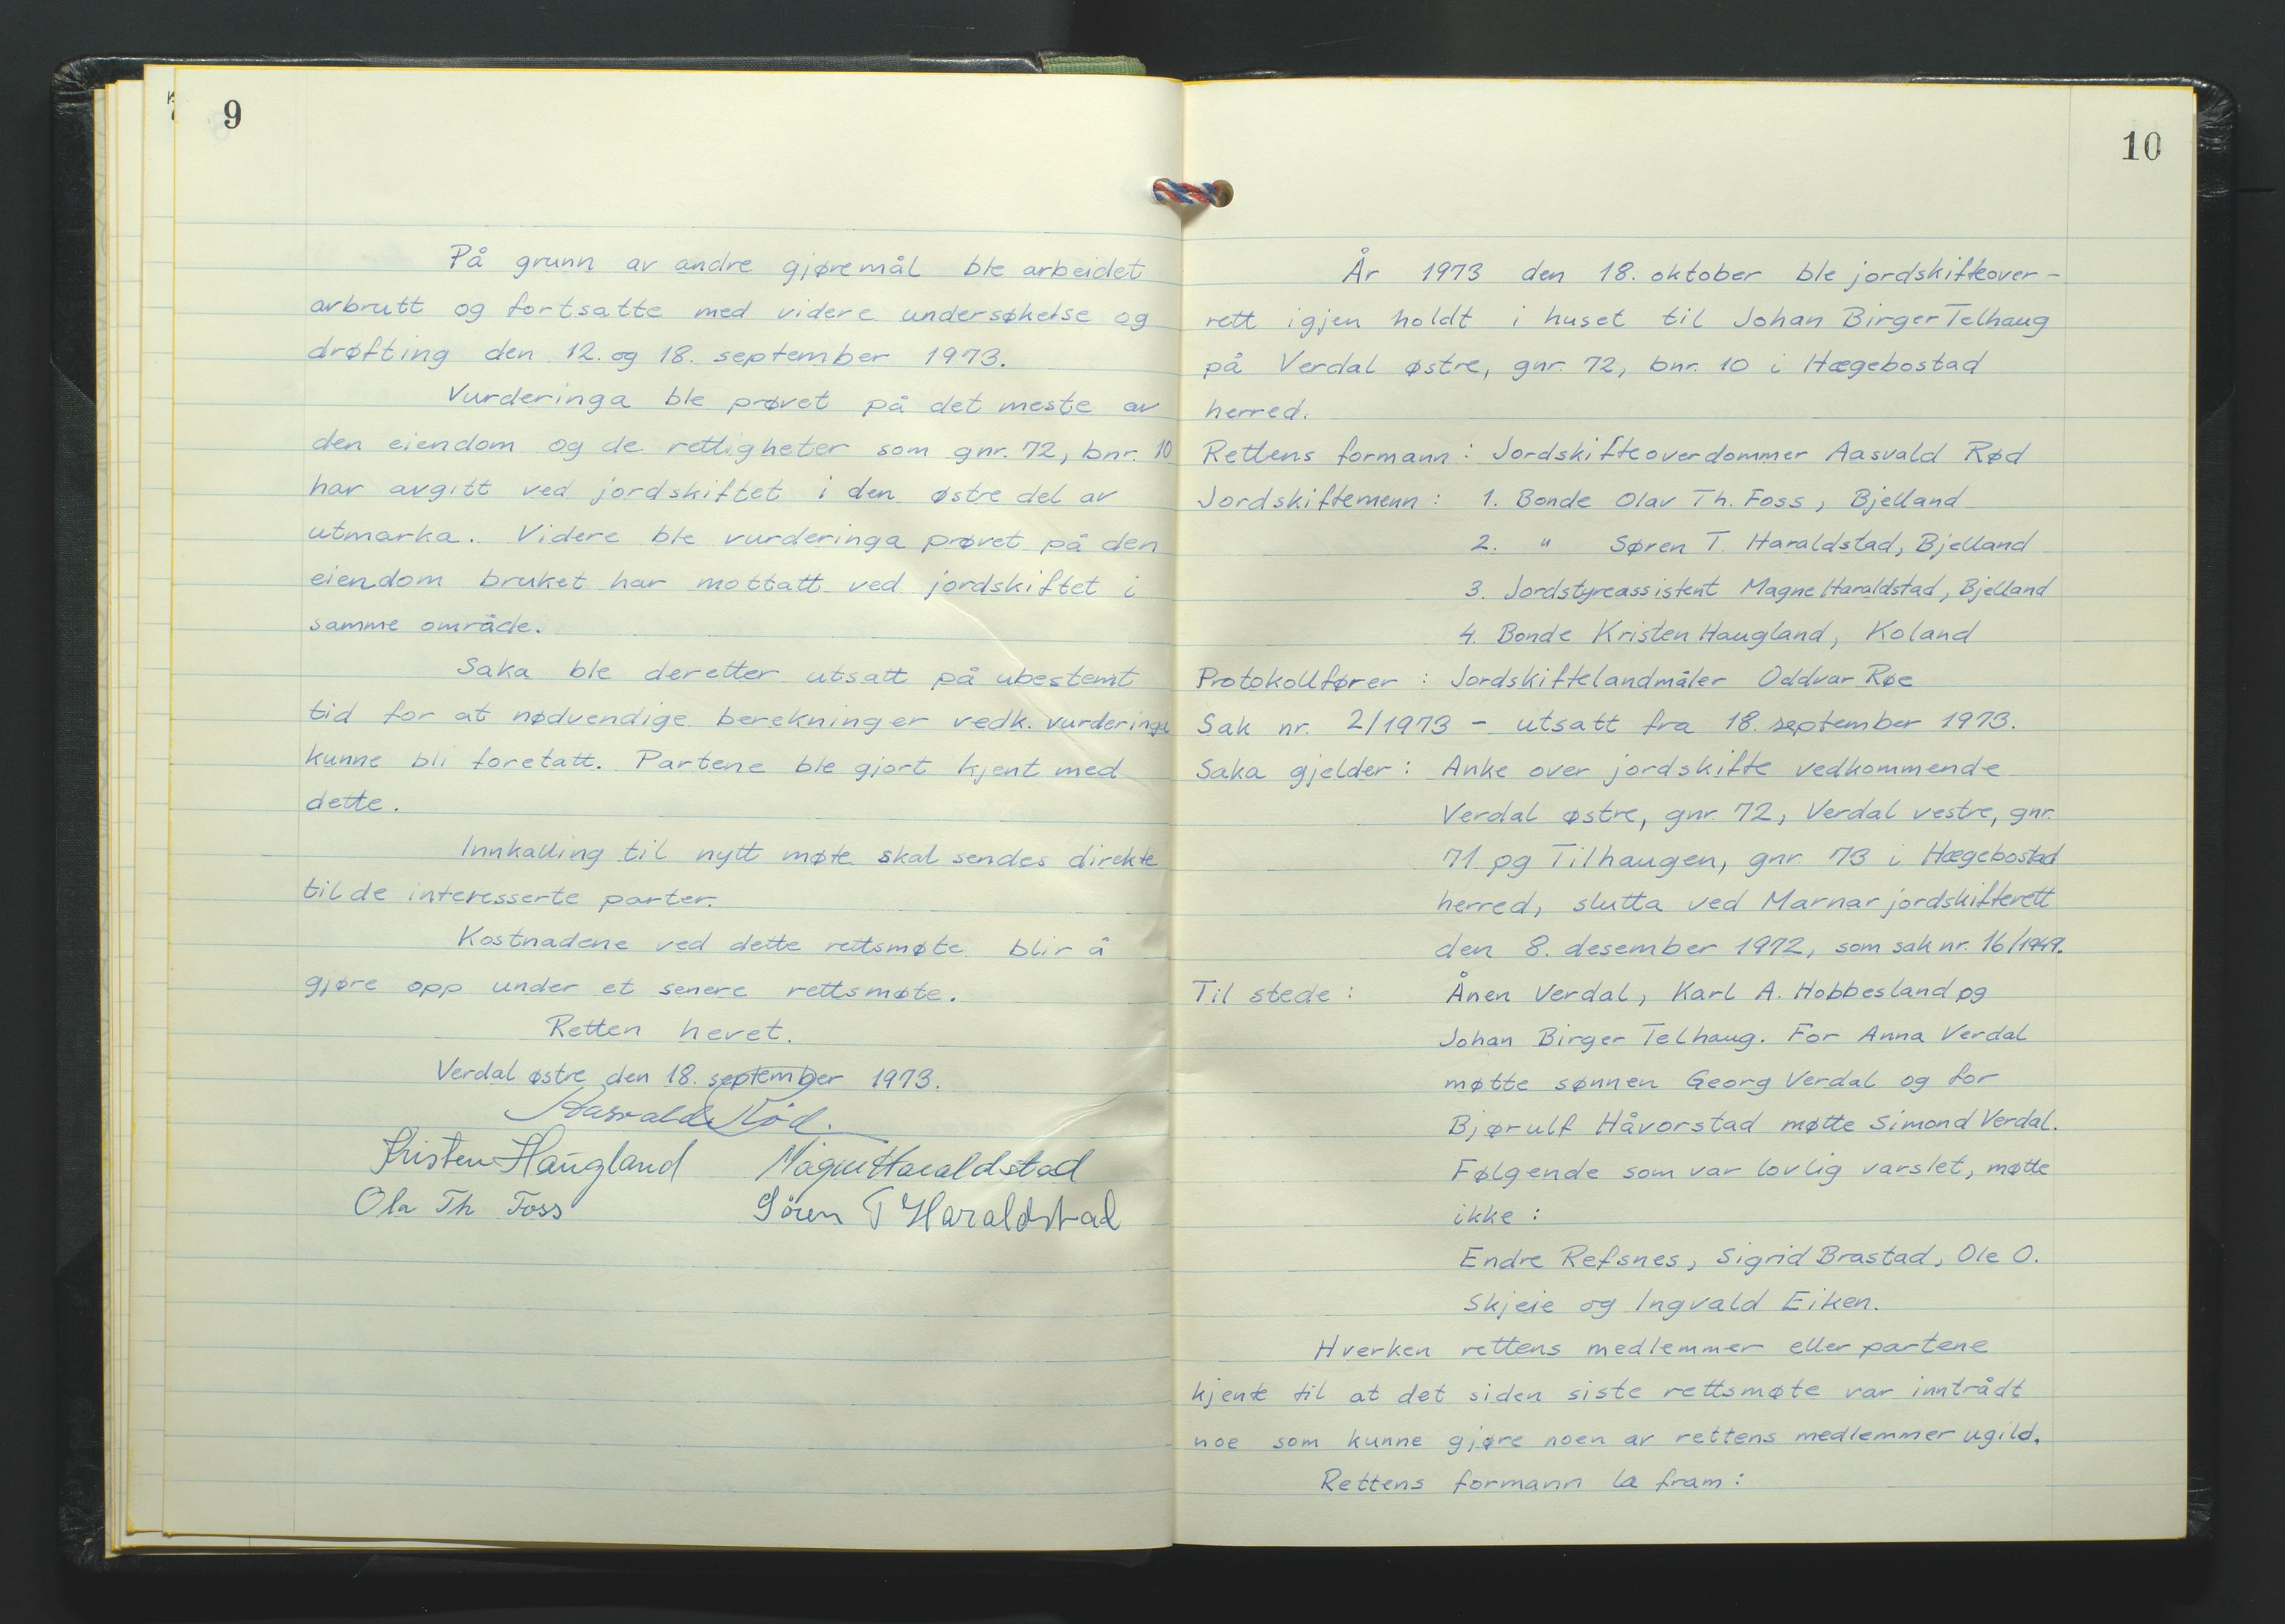 9
På grunn av andre gjøremål ble arbeidet
avbrutt og fortsatte med videre undersøkelse og
drøfting den 12. og 18. september 1973.
Vurderinga ble prøvet på det meste av
den eiendom og de rettigheter som gnr. 72, bnr. 10
har avgitt ved jordskiftet i den østre del av
utmarka. Videre ble vurderinga prøvet på den
eiendom bruket har mottatt ved jordskiftet i
samme område.
Saka ble deretter utsatt på ubestemt
tid for at nødvendige berekninger vedk. vurderinga
kunne bli foretatt. Partene ble gjort kjent med
dette.
Innkalling til nytt møte skal sendes direkte
til de interesserte parter.
Kostnadene ved dette rettsmøte blir å
gjøre opp under et senere rettsmøte.
Retten hevet.
Verdal østre den 18. september 1973.
Aasvald Rød.
Kristen Haugland Magne Haraldstad
Ola Th Foss Søren T Haraldstad
10
År 1973 den 18. oktober ble jordskifteover-
rett igjen holdt i huset til Johan Birger Telhaug
på Verdal østre, gnr. 72, bnr. 10 i Hægebostad
herred.
Rettens formann: Jordskifteoverdommer Aasvald Rød
Jordskiftemenn: 1. Bonde Olav Th. Foss, Bjelland
2. " Søren T. Haraldstad, Bjelland
3. Jordstyreassistent Magne Haraldstad, Bjelland
4. Bonde Kristen Haugland, Koland
Protokollfører: Jordskiftelandmåler Oddvar Røe
Sak nr. 2/1973 - utsatt fra 18. september 1973.
Saka gjelder: Anke over jordskifte vedkommende
Verdal østre, gnr. 72, Verdal vestre, gnr.
71 og Tilhaugen, gnr. 73 i Hægebostad
herred, slutta ved Marnar jordskifterett
den 8. desember 1972, som sak nr. 16/1949.
Til stede: Ånen Verdal, Karl A. Hobbesland og
Johan Birger Telhaug. For Anna Verdal
møtte sønnen Georg Verdal og for
Bjørulf Håvorstad møtte Simond Verdal.
Følgende som var lovlig varslet, møtte
ikke:
Endre Refsnes, Sigrid Brastad, Ole O.
Skjeie og Ingvald Eiken.
Hverken rettens medlemmer eller partene
kjente til at det siden siste rettsmøte var inntrådt
noe som kunne gjøre noen av rettens medlemmer ugild.
Rettens formann la fram: